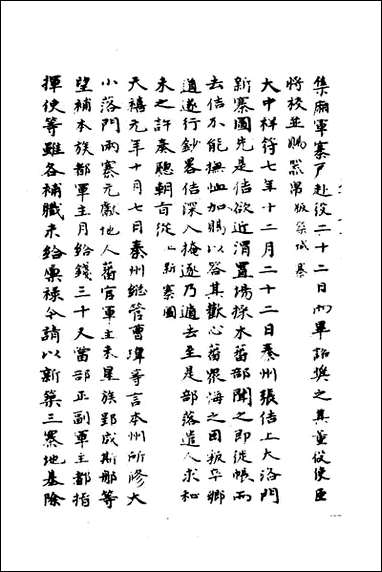 集廂軍寨戶赴役二十二日而畢詔獎之其董役使臣
將校並賜器帛版築城寨
大中祥符七年十二月二十二日秦州張佶上大洛門
新寨圖先是佶欲近渭置場採水蕃部聞之即徙帳而
去佶不能撫恤加賜以答其歡心蕃眾海之因叛华鄉
道遂行鈔畧佶深入掩逐乃遁去至是部落遣人求和
未之許秦聰朝旨從上新寨圖
天禧元年十月七日秦州總管曹瑋等言本州所修大
小落門兩寨元獻地人蕃官軍主末星族郢成斯那等
望補本族都軍主月給錢三十又當部正副軍主都指
揮使等雖各補職未給廩祿今請以新築三寨地基除